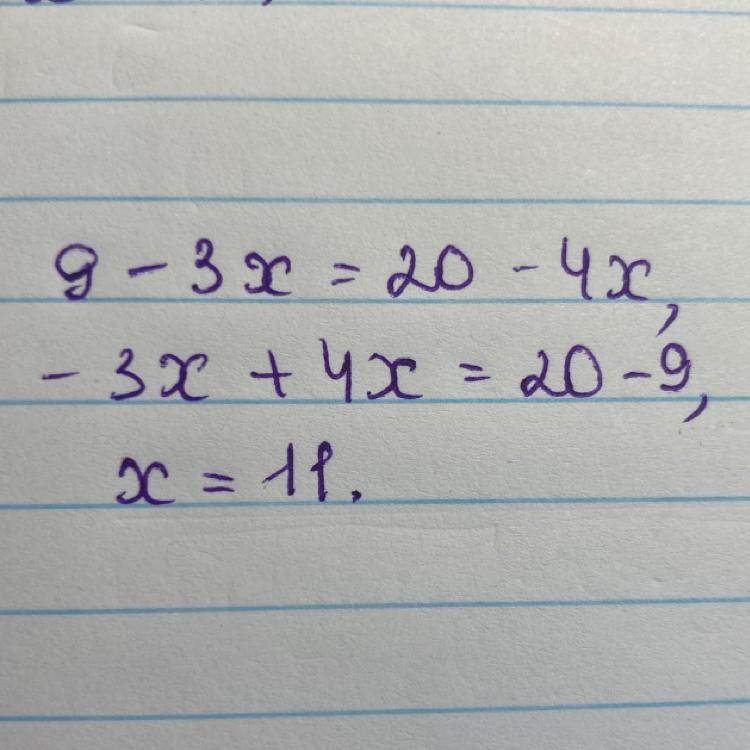 9 - 3x = 20 - 4x,
- 3x + 4x = 20 - 9,
x = 11.